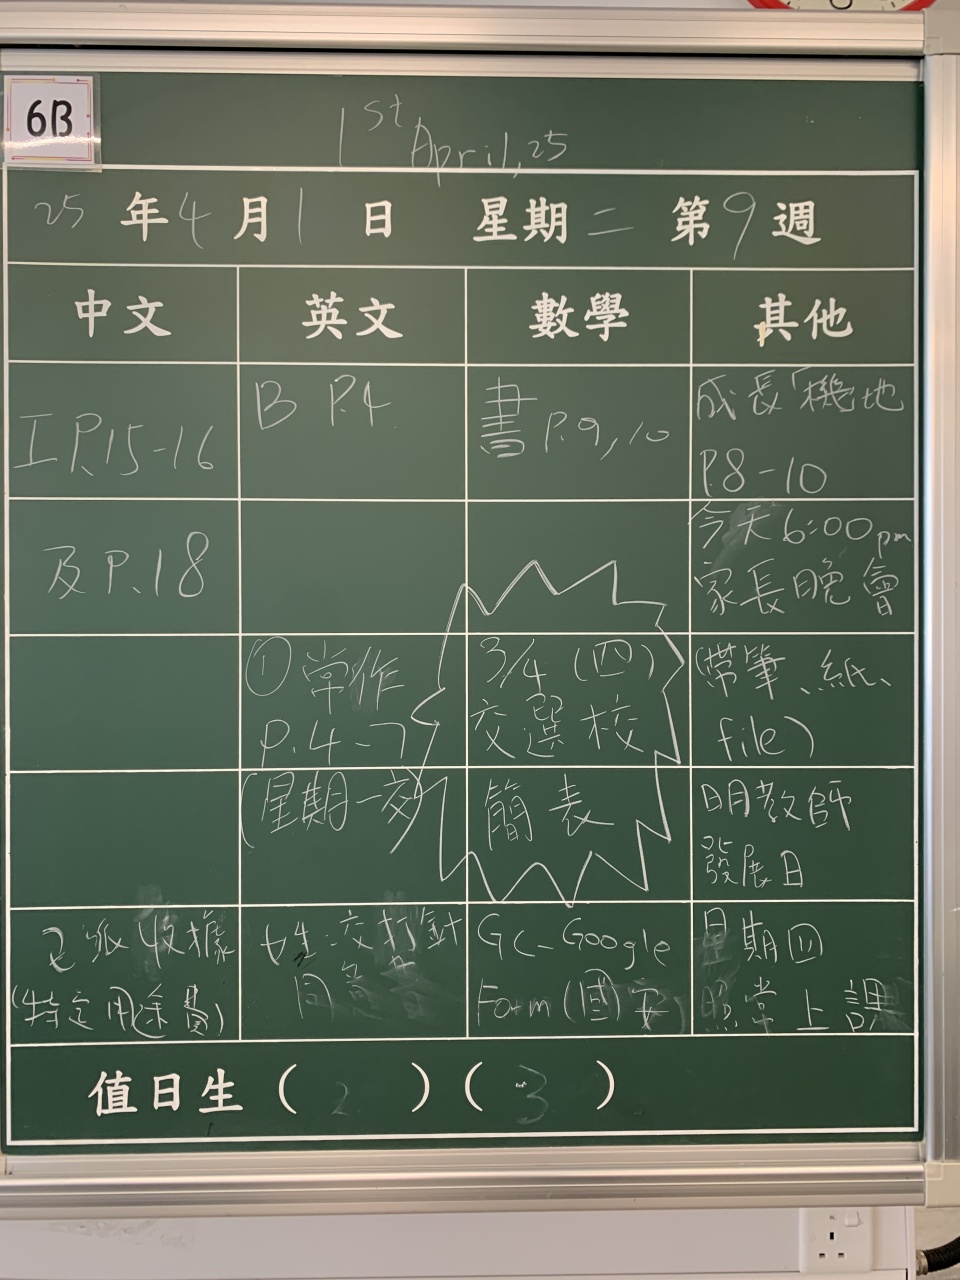 6B
1st April, 25
25年4月1日 星期二 第9週
中文 英文 數學 其他
工P.15-16
及P.18
已派收據
(特定用途費)
B P.4
①堂作
P.4-7
(星期一交)
交打針
同意書
書P.9,10
3/4 (四)
交選校
簡表
GC-Google
Form (國安)
成長「機地
P.8-10
今天6:00pm
家長晚會
(帶筆、紙、
file)
明教師
發展日
星期四
照常上課
值日生 (2) (3)